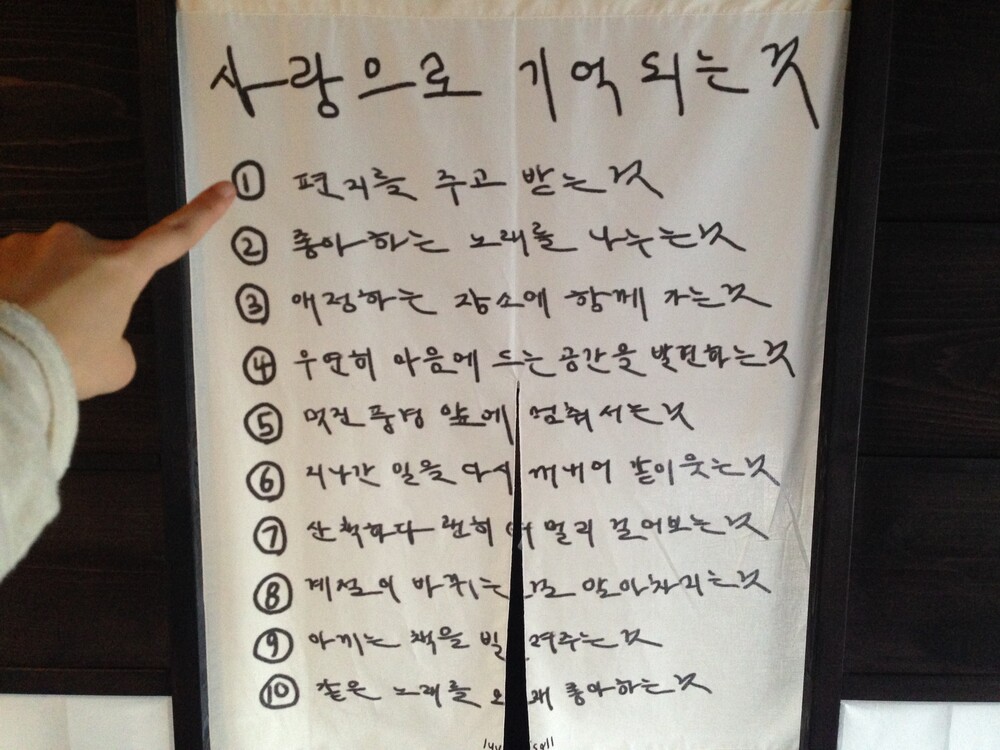 사랑으로 기억되는 것
① 편지를 주고 받는 것
② 좋아하는 노래를 나누는 것
③ 애정하는 장소에 함께 가는 것
④ 우연히 마음에 드는 공간을 발견하는 것
⑤ 멋진 풍경 앞에 멈춰서는 것
⑥ 지나간 일을 다시 꺼내어 같이 웃는 것
⑦ 산책하다 괜히 더 멀리 걸어보는 것
⑧ 계절이 바뀌는 걸 알아차리는 것
⑨ 아끼는 책을 빌려주는 것
⑩ 같은 노래를 오래 좋아하는 것